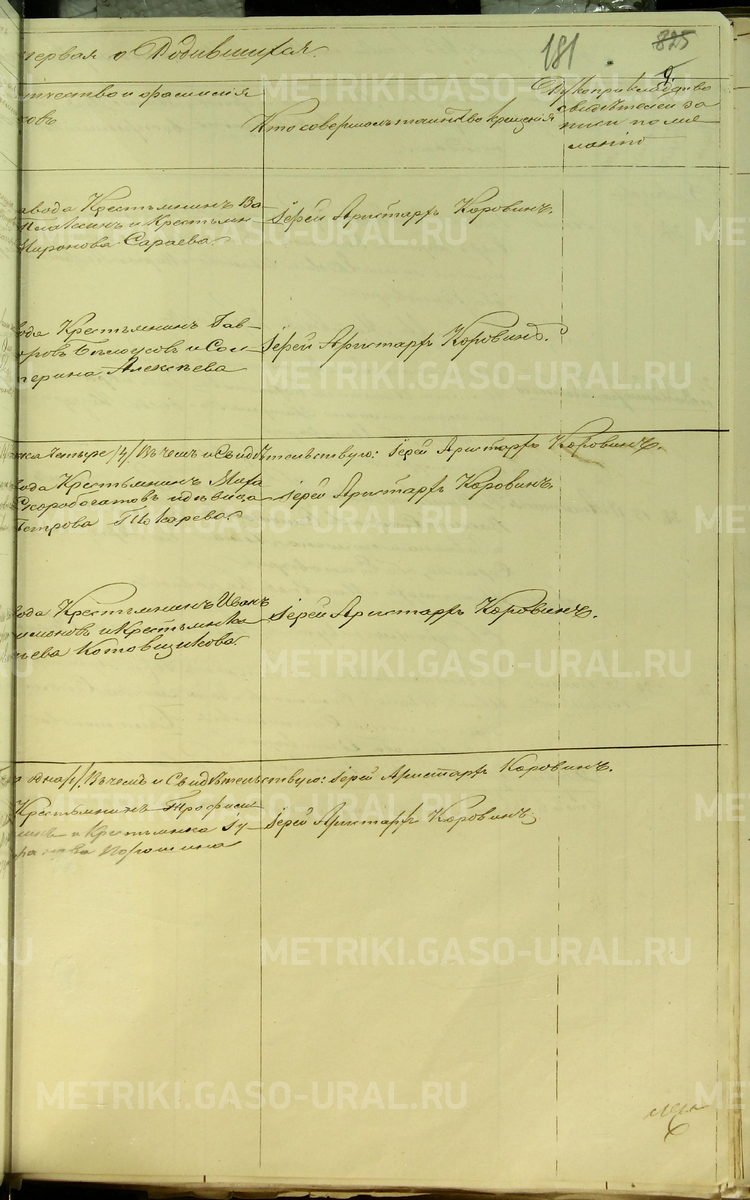 первая о Родившихся.
181
825
9
отчество и фамилия
ковъ
Кто совершалъ таинство крещенiя
Рукоприкладство
свидѣтелей за
писи по же
ланiю
завода Крестьянинъ Ва
и Крестьян
Миронова Сараева.
Іерей Аристархъ Коровинъ.
вода Крестьянинъ Гав-
Бѣлоусов и Сол-
терина Алексѣева
Іерей Аристархъ Коровинъ.
четыре /4/ Въ чемъ и Свидѣтельствую: Іерей Аристархъ Коровинъ.
вода Крестьянинъ Миха
Скоробогатовъ и дѣвица
Петрова Токарева.
Іерей Аристархъ Коровинъ
вода Крестьянинъ Иванъ
имоновъ и Крестьянка
ьева Котовщикова.
Іерей Аристархъ Коровинъ.
одна /1/. Въ чемъ и Свидѣтельствую: Іерей Аристархъ Коровинъ.
Крестьянинъ Трофим
и Крестьянка Іу
Порошина
Іерей Аристархъ Коровинъ
METRIKI.GASO-URAL.RU